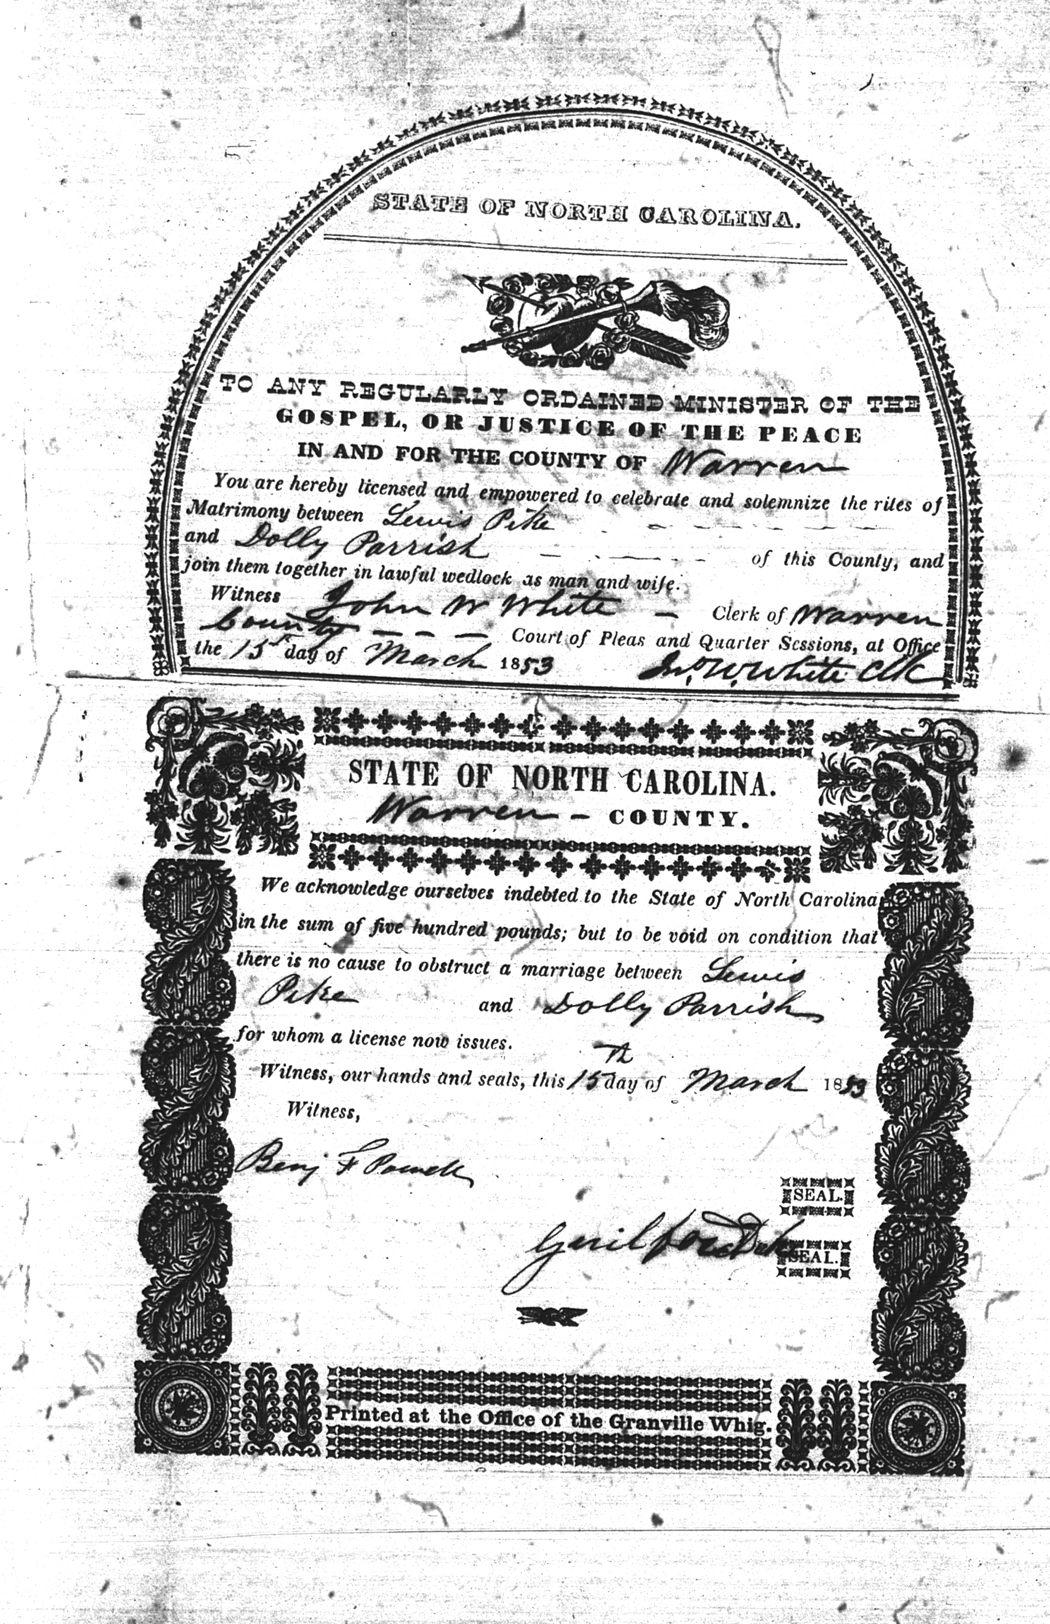 STATE OF NORTH CAROLINA.
TO ANY REGULARLY ORDAINED MINISTER OF THE
GOSPEL, OR JUSTICE OF THE PEACE
IN AND FOR THE COUNTY OF Warren
You are hereby licensed and empowered to celebrate and solemnize the rites of
Matrimony between Lewis Pike
and Dolly Parrish of this County, and
join them together in lawful wedlock as man and wife.
Witness John W White - Clerk of Warren
County - - - Court of Pleas and Quarter Sessions, at Office
the 15th day of March 1853 Jno. W. White Clk
STATE OF NORTH CAROLINA.
Warren - COUNTY.
We acknowledge ourselves indebted to the State of North Carolina
in the sum of five hundred pounds; but to be void on condition that
there is no cause to obstruct a marriage between Lewis
Pike and Dolly Parrish
for whom a license now issues.
Witness, our hands and seals, this 15th day of March 1853
Witness,
Benj F Powell
SEAL.
Guilford
SEAL.
Printed at the Office of the Granville Whig.